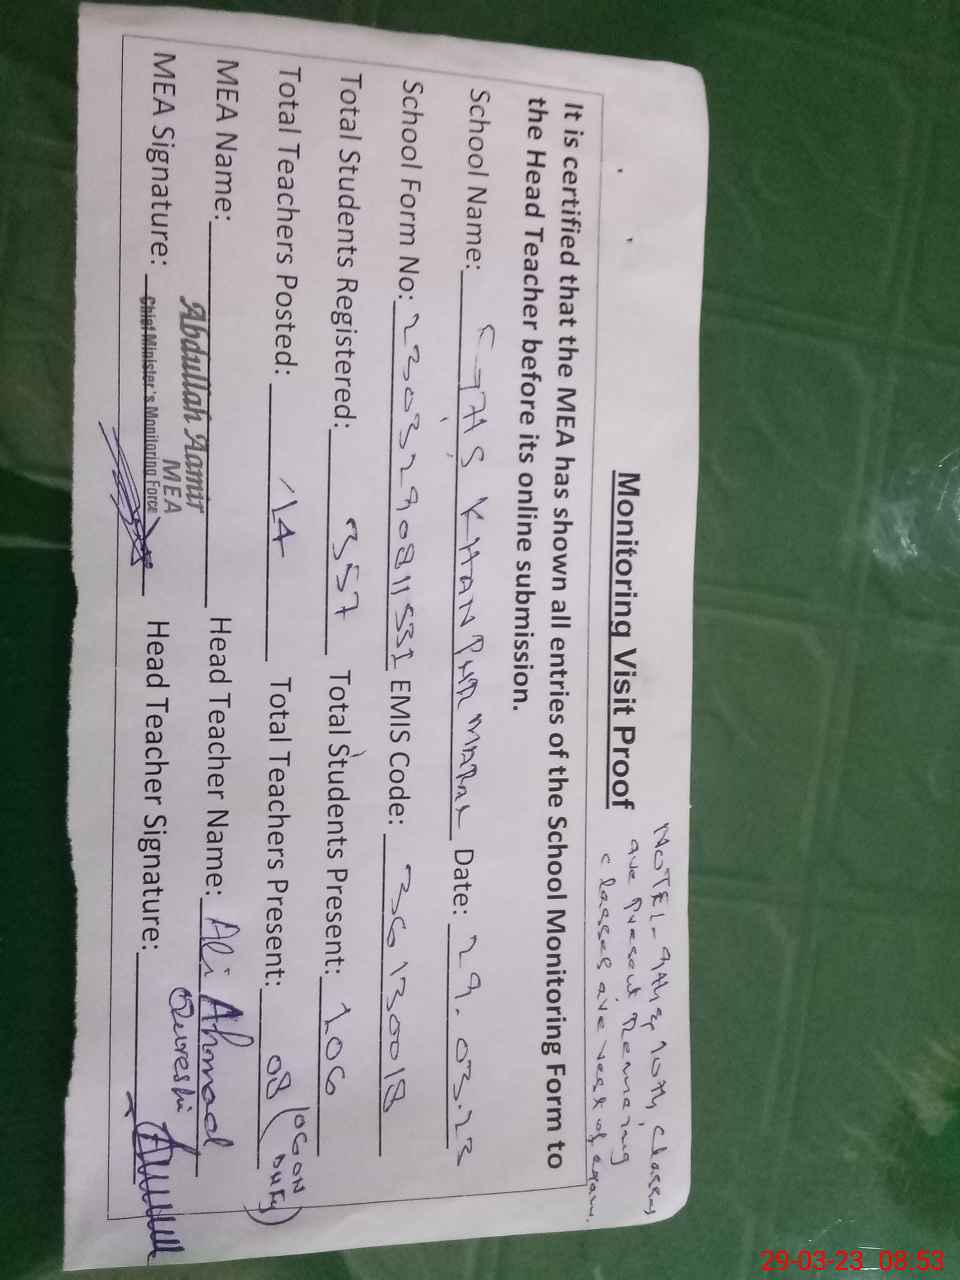 NOTE:- 9th & 10th Classes
are present Remaining
classes are rest of exam.
Monitoring Visit Proof
It is certified that the MEA has shown all entries of the School Monitoring Form to
the Head Teacher before its online submission.
School Name: GHS KHANPUR MARAL Date: 29.03.23
School Form No: 2303290811531 EMIS Code: 36130018
Total Students Registered: 357 Total Students Present: 106
Total Teachers Posted: 14 Total Teachers Present: 08 (06 ON DUTY)
MEA Name: Abdullah Aamir Head Teacher Name: Ali Ahmad Qureshi
MEA
MEA Signature: Chief Minister's Monitoring Force Head Teacher Signature:
29-03-23 08:53